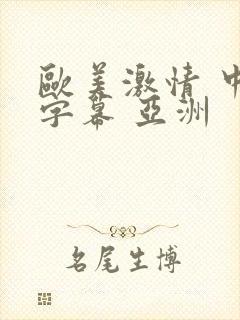 歐美激情 中
字幕 亞洲
名尾生博